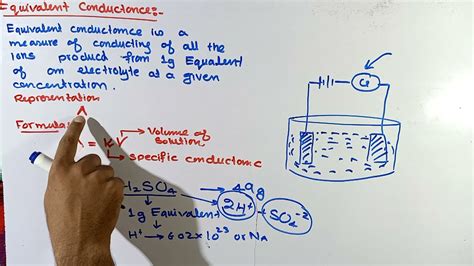 Equivalent Conductance:-
Equivalent conductance is a
measure of conducting of all the
ions product from 1g Equalent
of an electrolyte at a given
concentration.
Representation
Λ
Formula
= KV → Volume of
Solution
→ specific conductance
H2SO4 → 49g
1g Equivalent 2H+ + SO4-2
H+ → 602×10^23 or NA
G